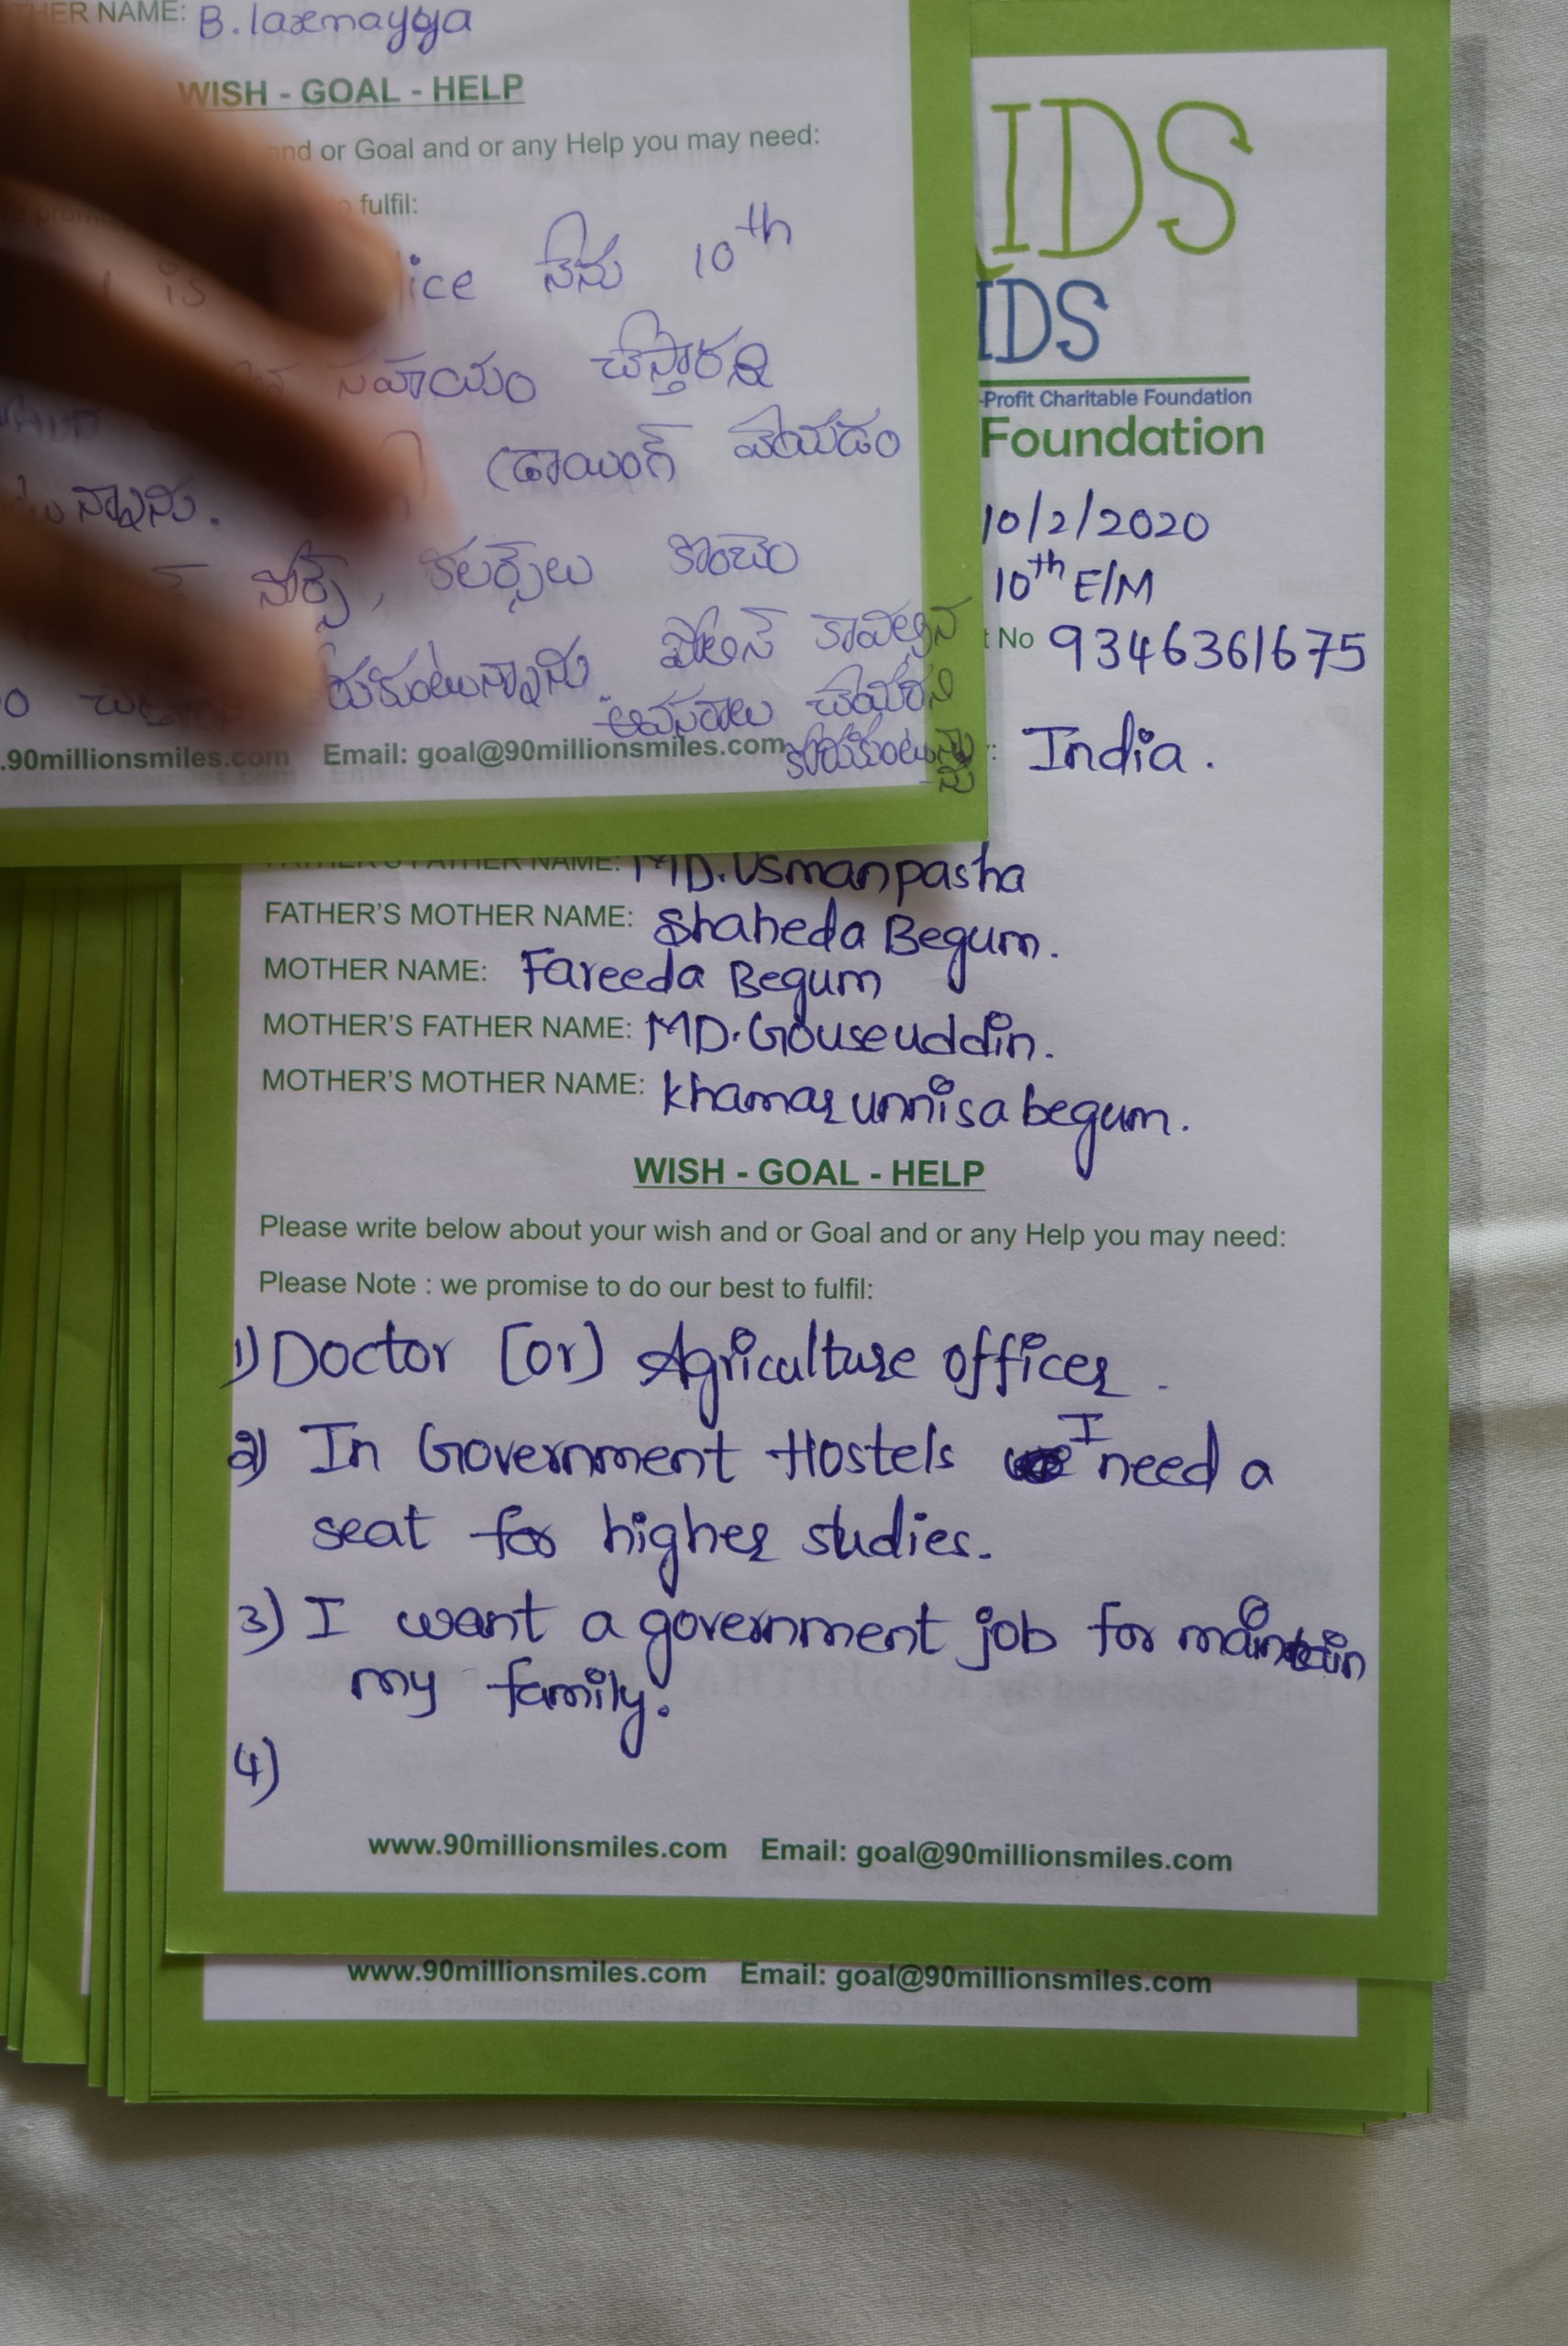 HER NAME: B. laxmayya
WISH - GOAL - HELP
and or Goal and or any Help you may need:
fulfil:
is నేను 10th
సహాయం చేస్తారని
డ్రాయింగ్ వేయడం
కలర్స్‌లు కొంచెం
పోలీస్ కావల్సిన
అవసరాలు చేయరని
.90millionsmiles.com Email: goal@90millionsmiles.com కోరుకుంటున్నాను
IDS
IDS
-Profit Charitable Foundation
Foundation
10/2/2020
10th E/M
No 9346361675
: India.
FATHER'S FATHER NAME: MD. Usmanpasha
FATHER'S MOTHER NAME: Shaheda Begum.
MOTHER NAME: Fareeda Begum
MOTHER'S FATHER NAME: MD. Gouseuddin.
MOTHER'S MOTHER NAME: khamar unnisa begum.
WISH - GOAL - HELP
Please write below about your wish and or Goal and or any Help you may need:
Please Note : we promise to do our best to fulfil:
1) Doctor [or] Agriculture officer.
2) In Government Hostels I need a
seat for higher studies.
3) I want a government job for maintain
my family.
4)
www.90millionsmiles.com Email: goal@90millionsmiles.com
www.90millionsmiles.com Email: goal@90millionsmiles.com